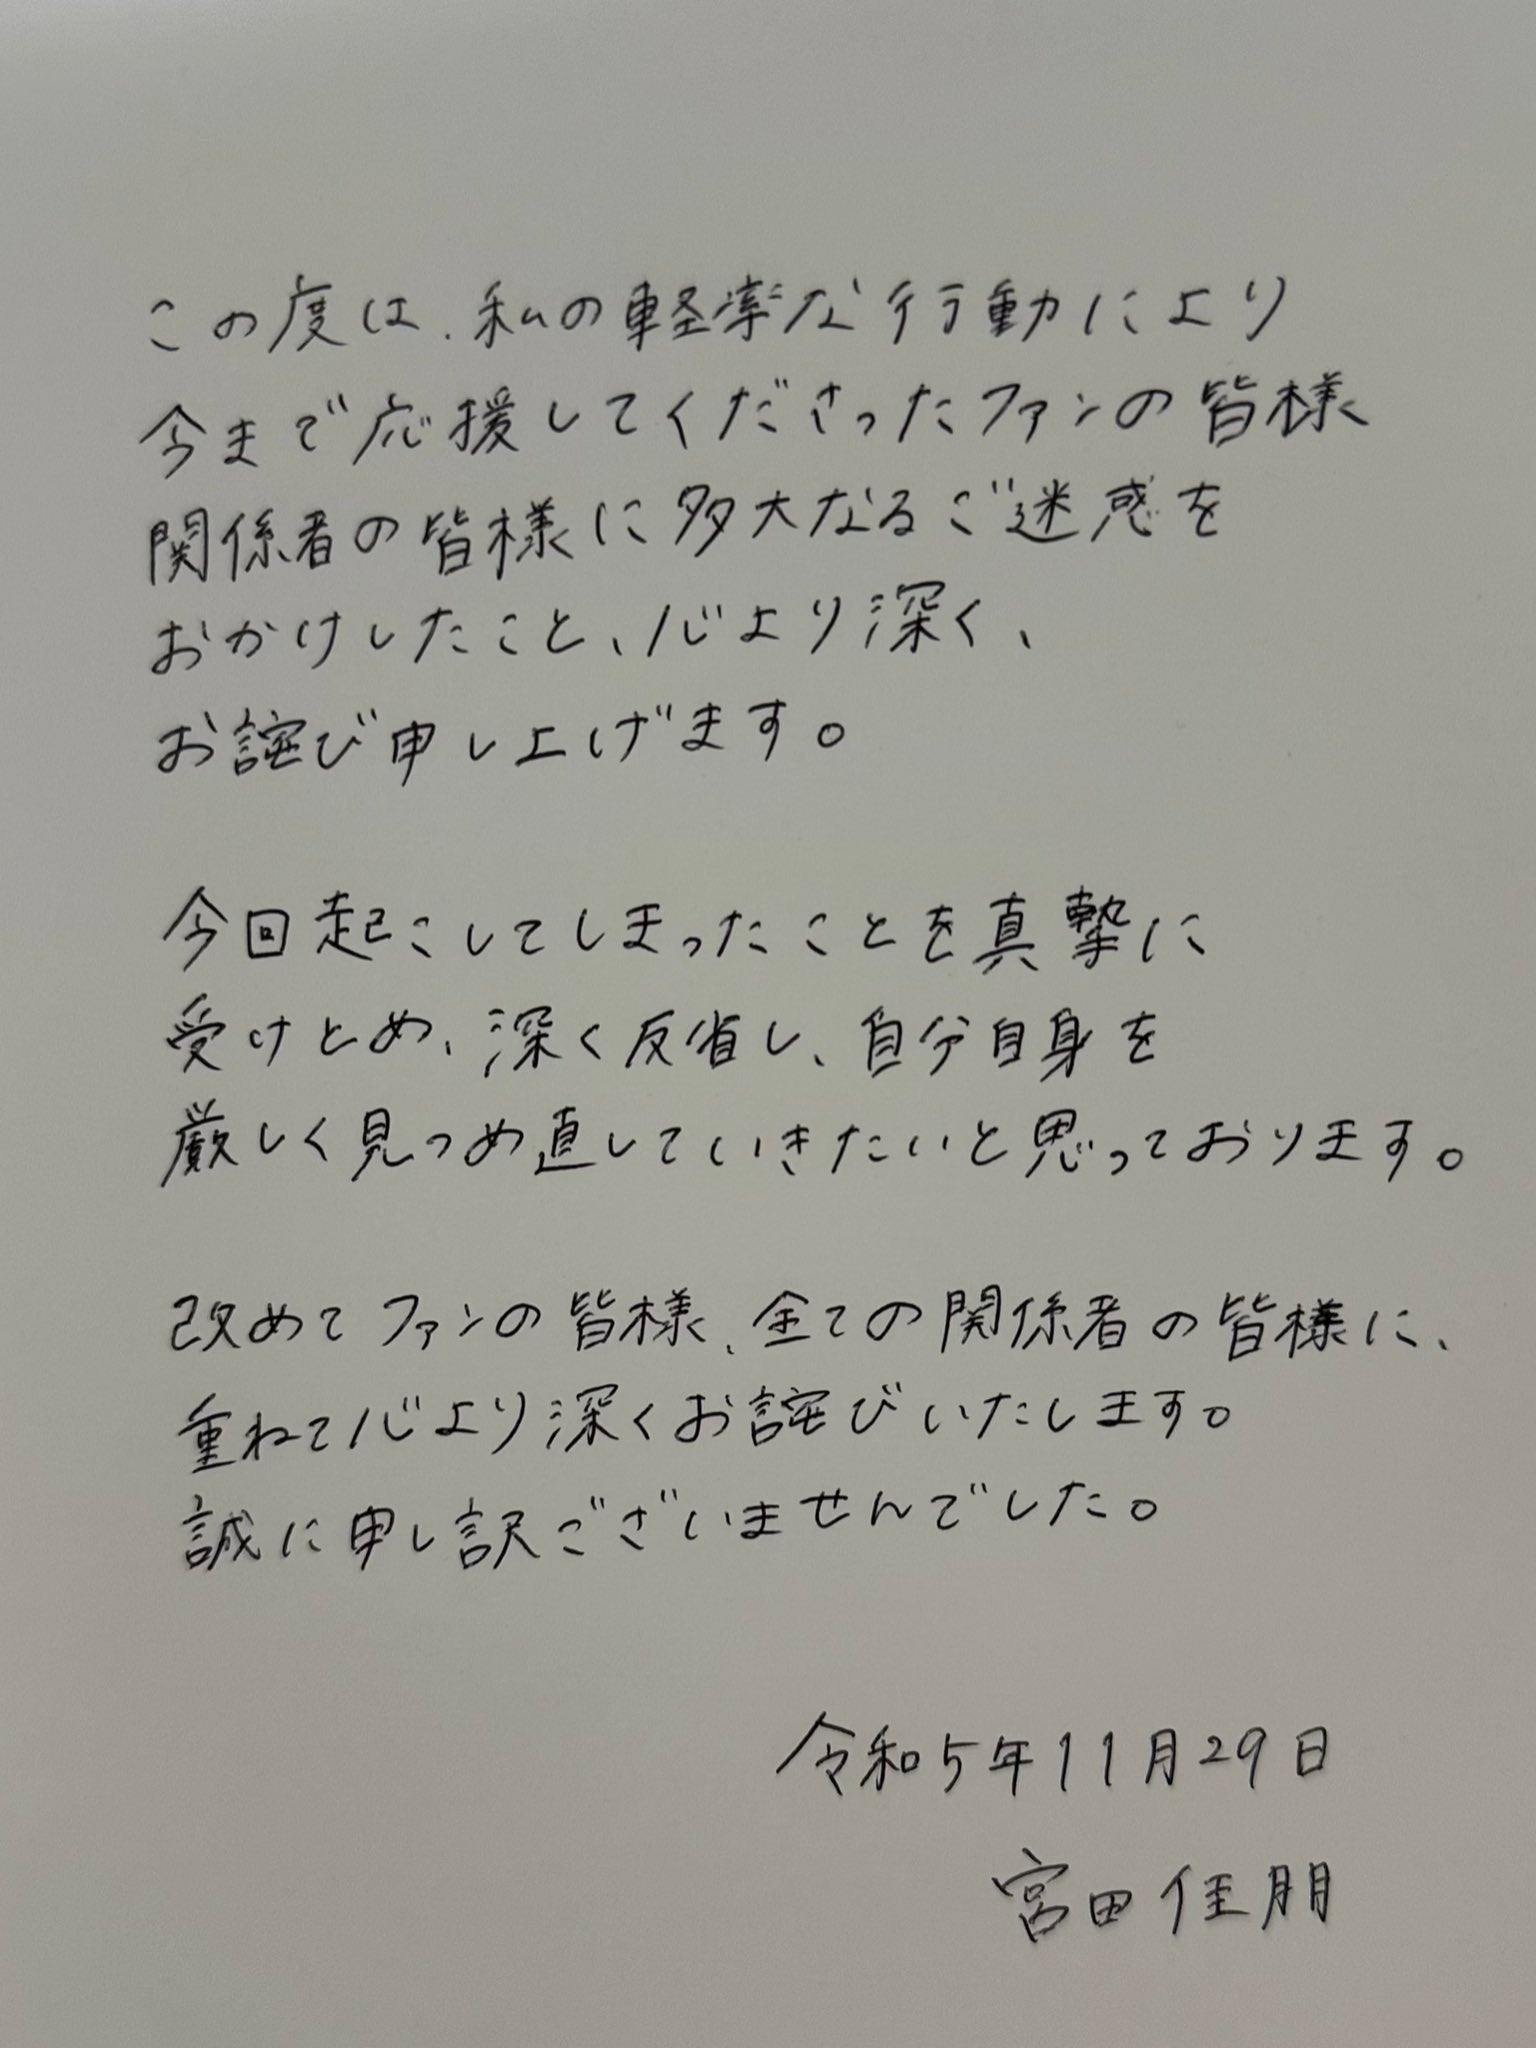 この度は、私の軽率な行動により
今まで応援してくださったファンの皆様
関係者の皆様に多大なるご迷惑を
おかけしたこと、心より深く、
お詫び申し上げます。
今回起こしてしまったことを真摯に
受けとめ、深く反省し、自分自身を
厳しく見つめ直していきたいと思っております。
改めてファンの皆様、全ての関係者の皆様に、
重ねて心より深くお詫びいたします。
誠に申し訳ございませんでした。
令和5年11月29日
宮田佳朋